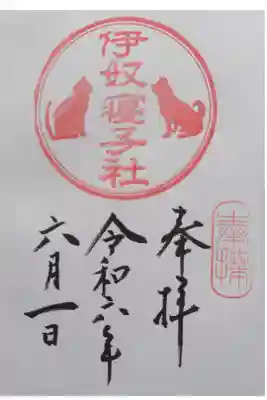 奉拝
奉拝
伊奴寝子社
令和六年
六月一日